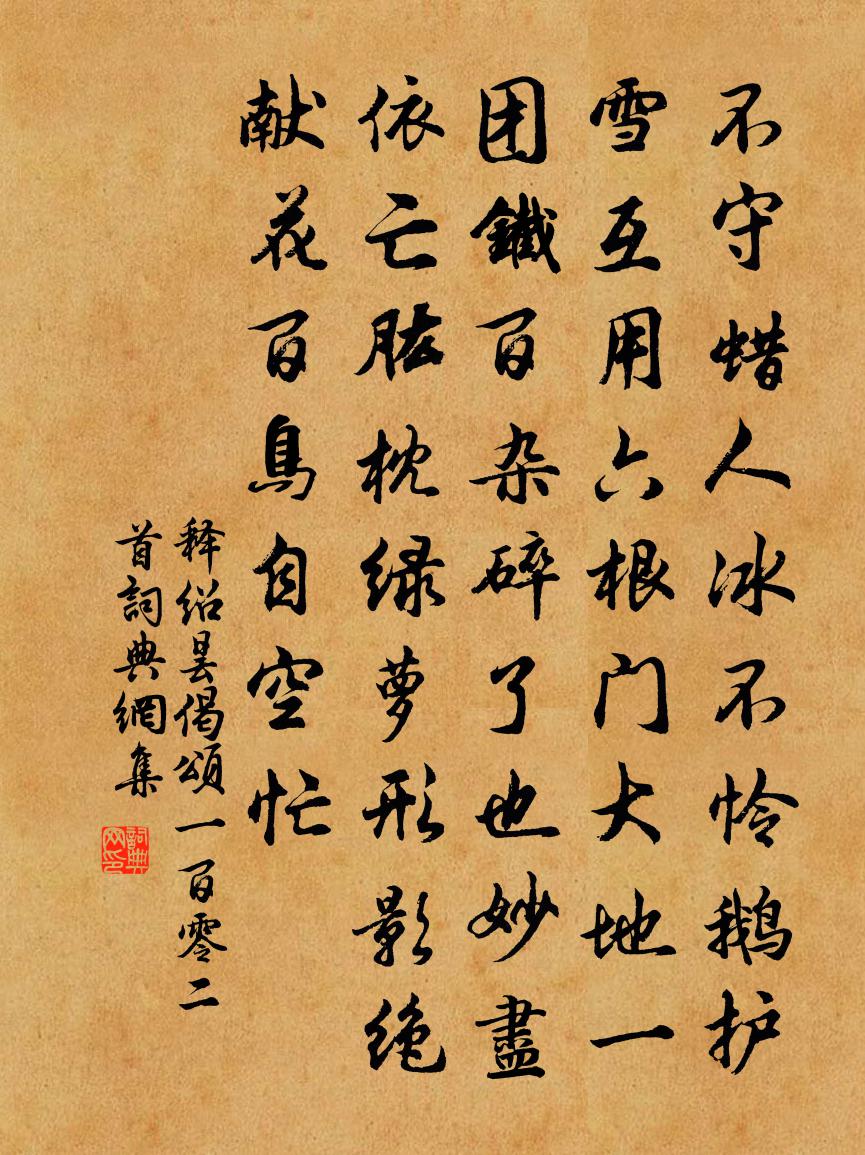 不守蜡人冰不怜鹅护
雪互用六根门大地一
团鐵百杂碎了也妙盡
依亡肱枕绿萝形影绝
献花百鳥自空忙
释绍昙偈頌一百零二
首詞典網集
詞典网印